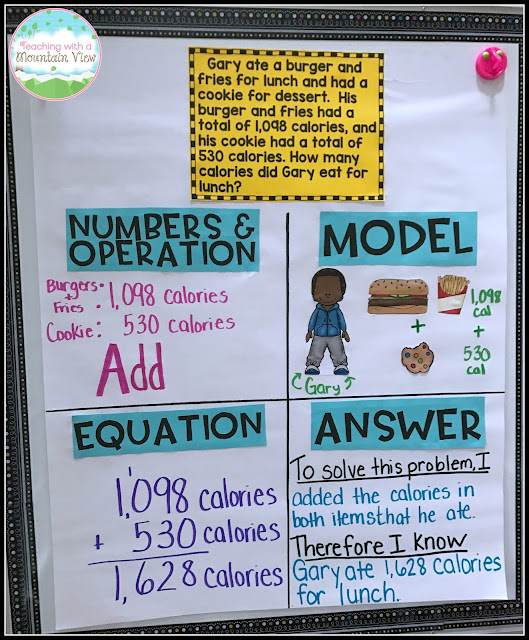 Teaching with a
Mountain View
Gary ate a burger and
fries for lunch and had a
cookie for dessert. His
burger and fries had a
total of 1,098 calories, and
his cookie had a total of
530 calories. How many
calories did Gary eat for
lunch?
NUMBERS &
OPERATION
Burgers
+
Fries : 1,098 calories
Cookie: 530 calories
Add
MODEL
1,098
cal
+
+
530
cal
Gary
EQUATION
1
1,098 calories
+ 530 calories
1,628 calories
ANSWER
To solve this problem, I
added the calories in
both items that he ate.
Therefore I Know
Gary ate 1,628 calories
for lunch.